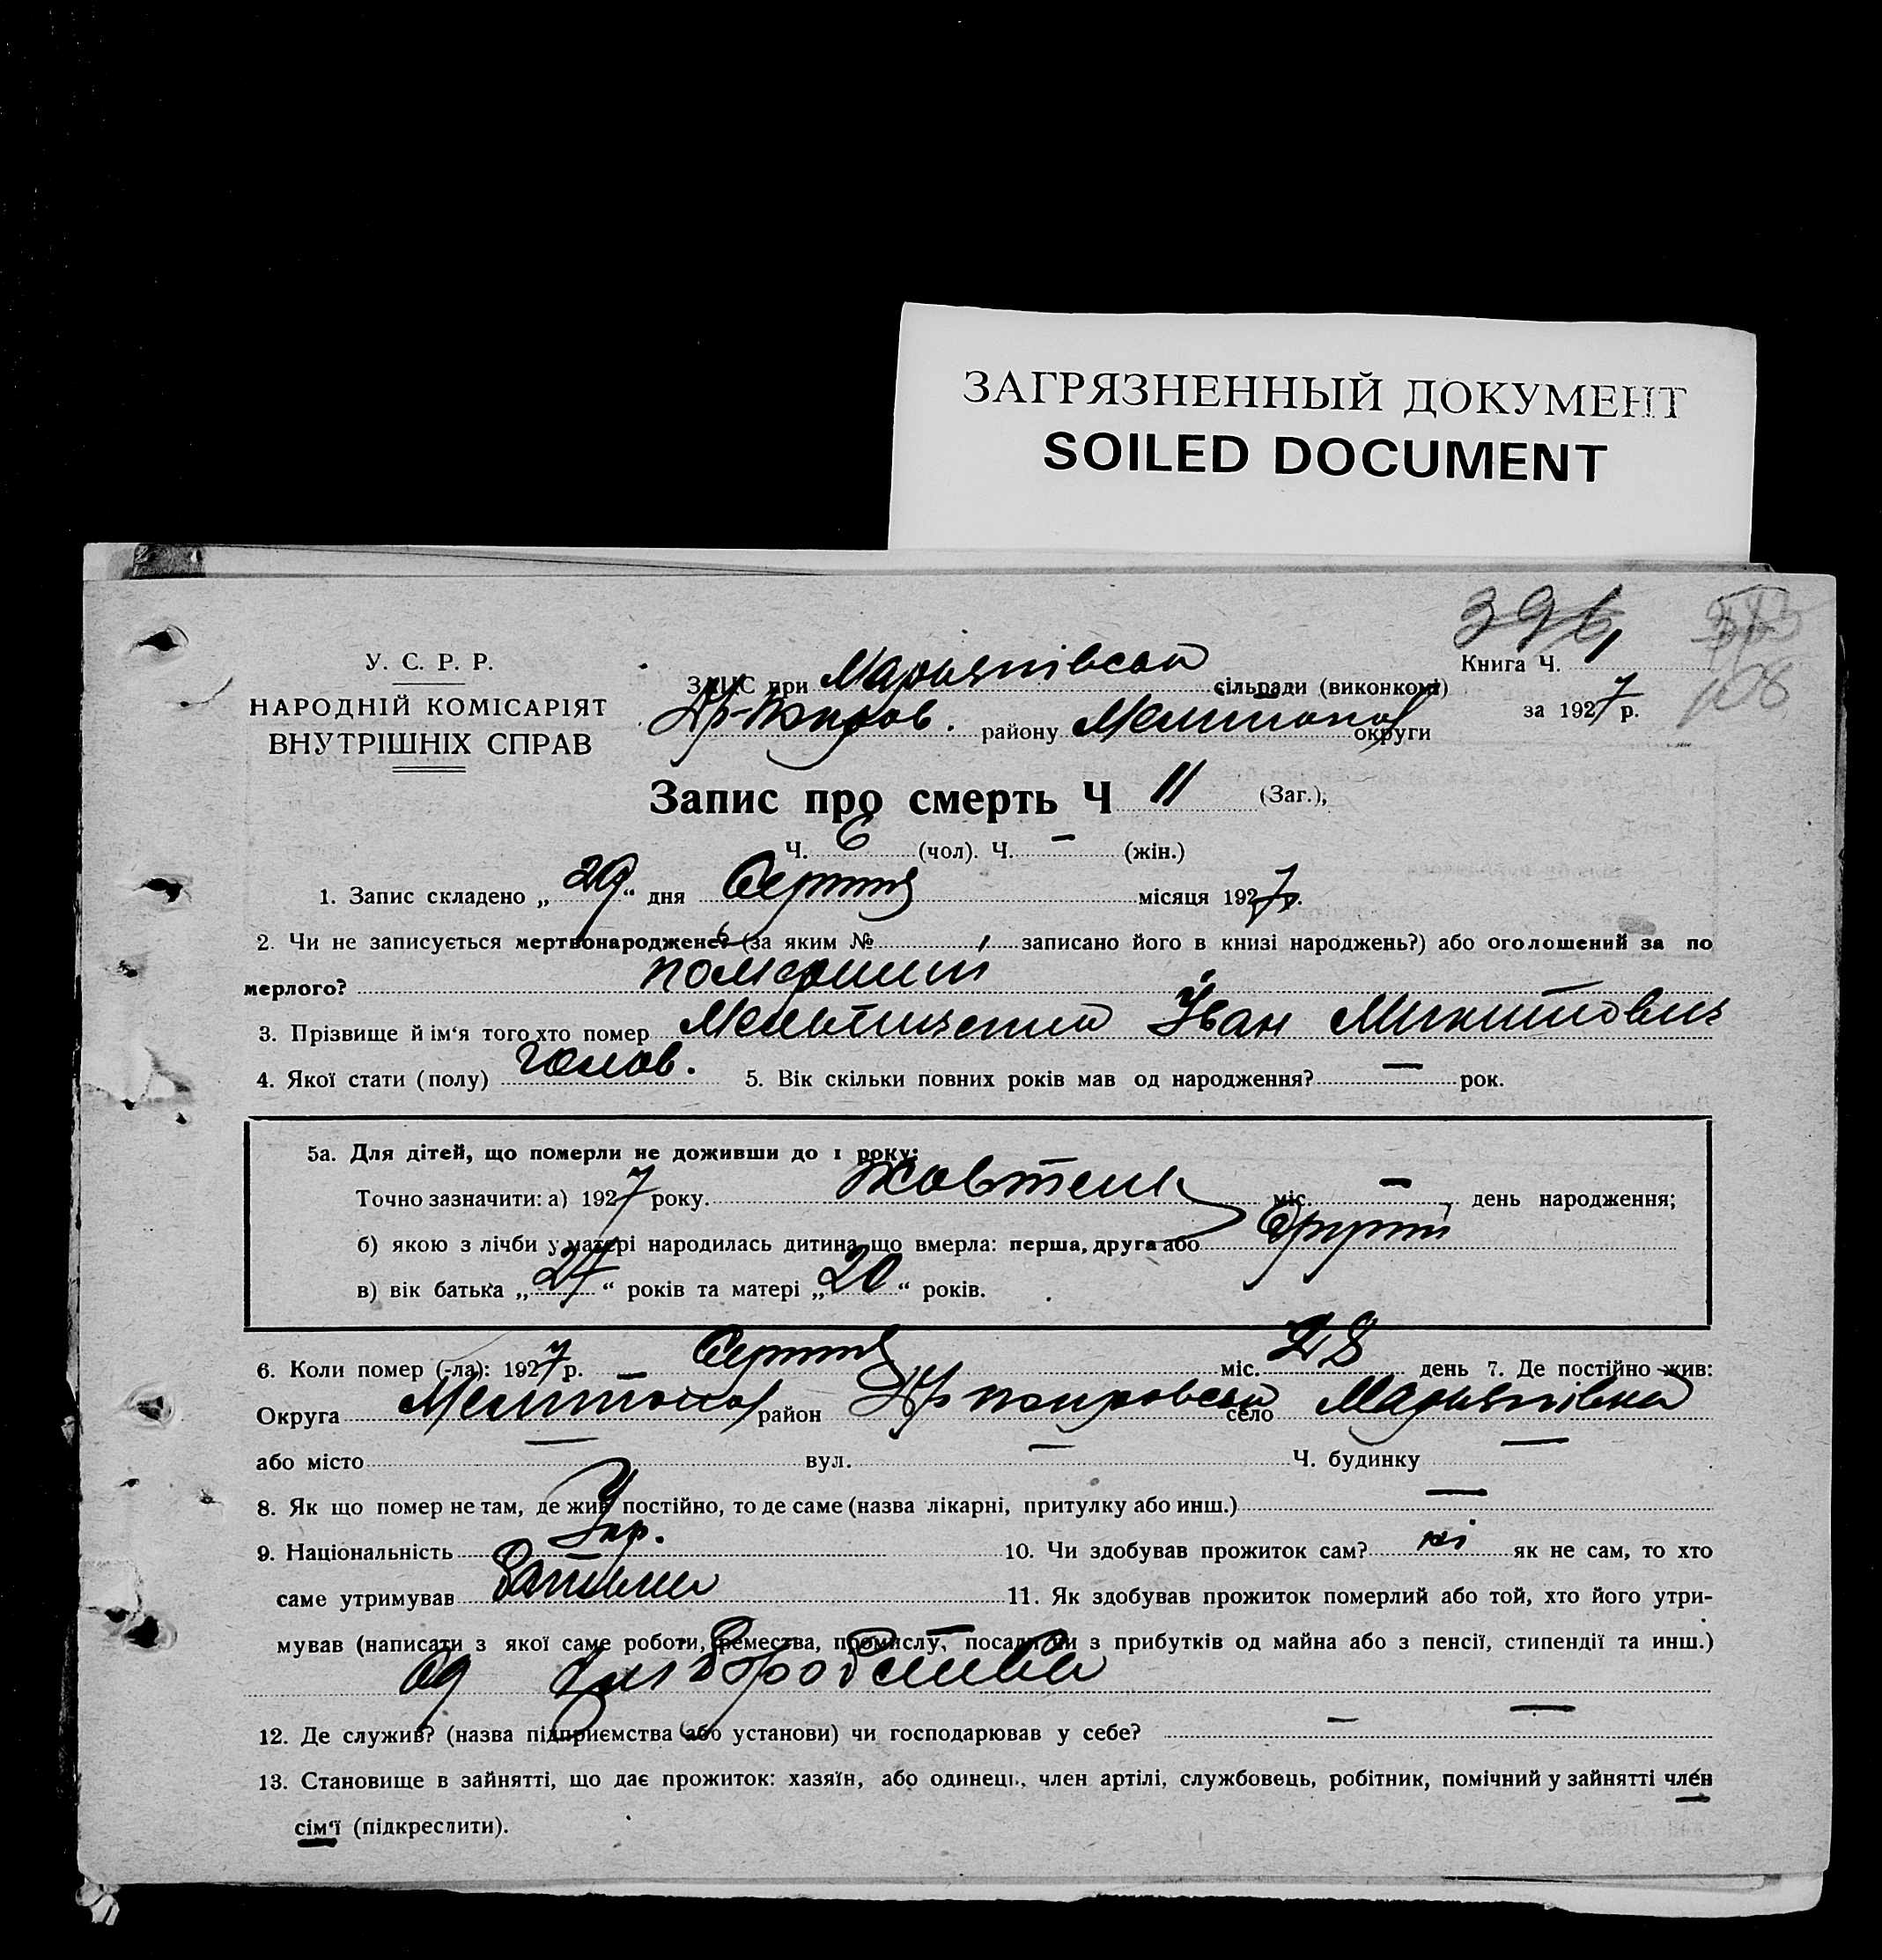 ЗАГРЯЗНЕННЫЙ ДОКУМЕНТ
SOILED DOCUMENT
108
У. С. Р. Р.
НАРОДНІЙ КОМІСАРІЯТ
ВНУТРІШНІХ СПРАВ
Книга Ч.
ЗАПИС при Мар'янівській сільради (виконкомі)
за 1927 р.
району Мелітопол округи
Запис про смерть Ч 11 (Заг.),
Ч. 6 (чол). Ч. – (жін.)
1. Запис складено „29“ дня Серпня місяця 1927 р.
2. Чи не записується мертвонароджене? (за яким № записано його в книзі народжень?) або оголошений за по
мерлого? померший
3. Прізвище й ім‘я того хто помер Іван Микитович
4. Якої стати (полу) чолов. 5. Вік скільки повних років мав од народження? — рок.
5а. Для дітей, що померли не доживши до 1 року:
Точно зазначити: а) 1927 року. Жовтень міс. – день народження;
б) якою з лічби у матері народилась дитина що вмерла: перша, друга або друга
в) вік батька „24“ років та матері „20“ років.
6. Коли помер (-ла): 1927 р. – Серпня міс. 28 день 7. Де постійно жив:
Округа Мелітопол район село Мар'янівка
або місто — вул. — Ч. будинку —
8. Як що помер не там, де жив постійно, то де саме (назва лікарні, притулку або инш.) —
9. Національність Укр. 10. Чи здобував прожиток сам? ні як не сам, то хто
саме утримував батьки 11. Як здобував прожиток померлий або той, хто його утри-
мував (написати з якої саме роботи, ремества, промислу, посади чи з прибутків од майна або з пенсії, стипендії та инш.)
од хліборобства
12. Де служив? (назва підприємства або установи) чи господарював у себе? — —
13. Становище в зайнятті, що дає прожиток: хазяїн, або одинець, член артілі, службовець, робітник, помічний у зайнятті член
сім‘ї (підкреслити).